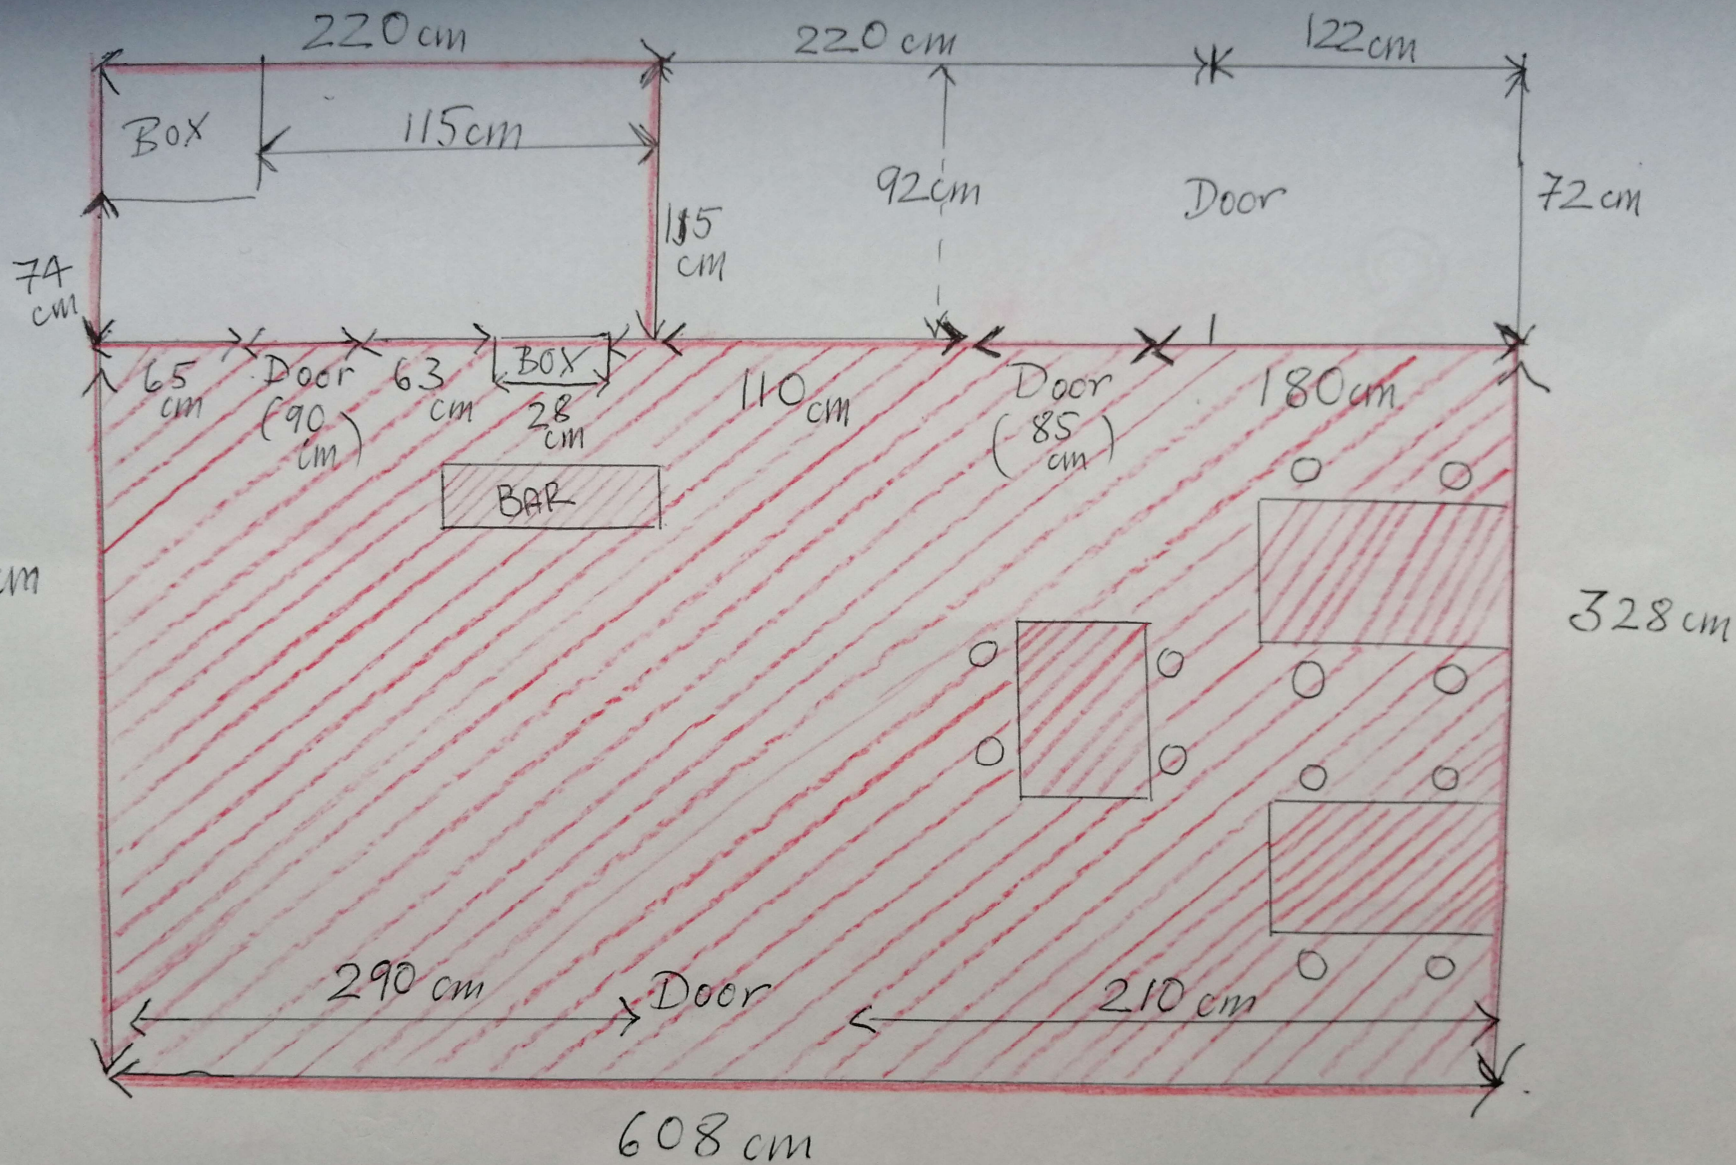 220cm
220cm
122cm
BOX
115cm
92cm
Door
72cm
115
cm
74
cm
65
cm
Door
(90
cm)
63
cm
BOX
28
cm
110cm
Door
(85
cm)
180cm
BAR
cm
328cm
290 cm
Door
210 cm
608 cm